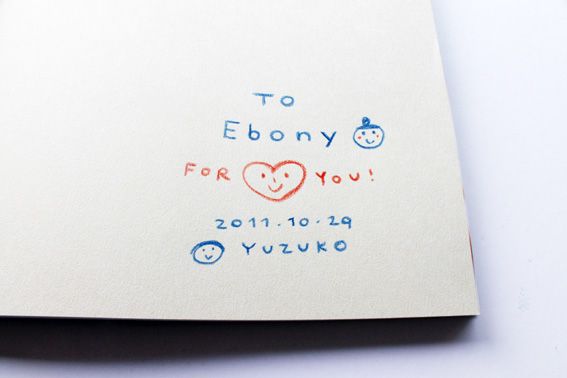 TO
Ebony
FOR YOU!
2011.10.29
YUZUKO